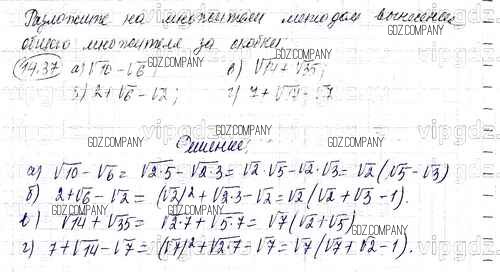 Разложите на множители методом вынесения
общего множителя за скобки:
14.37 а) √10 - √6; в) √14 + √35;
б) 2 + √6 - √2; г) 7 + √14 - √7
Решение:
а) √10 - √6 = √2·5 - √2·3 = √2·√5 - √2·√3 = √2(√5 - √3)
б) 2 + √6 - √2 = (√2)² + √2·3 - √2 = √2(√2 + √3 - 1).
в) √14 + √35 = √2·7 + √5·7 = √7(√2 + √5)
г) 7 + √14 - √7 = (√7)² + √2·7 - √7 = √7(√7 + √2 - 1).
GDZ.COMPANY
vipgdz